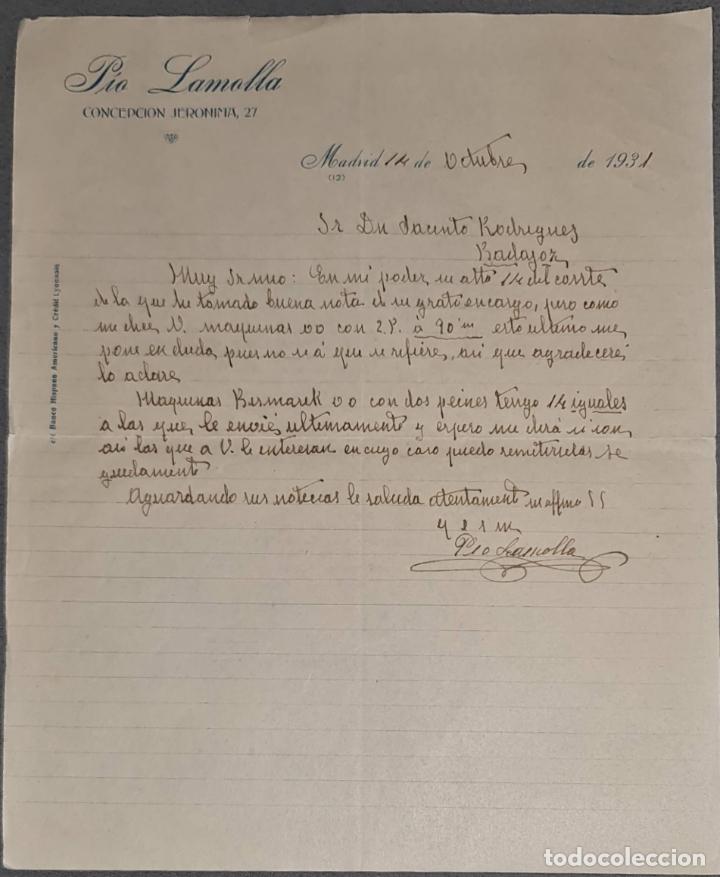 Pío Lamolla
CONCEPCION JERONIMA, 27
Madrid 14 de Octubre de 1931
(12)
Sr Dn Jacinto Rodrigues
Badajoz
Muy Sr mio: En mi poder su atta 14 del corrte
de la que he tomado buena nota de su grato encargo, pero como
me dice V. maquinas 00 con 2.P. á 90 esto ultimo me
pone en duda pues no sé á que se refiere, asi que agradeceré
lo aclare
Maquinas Bismarek 00 con dos peines tengo 14 iguales
a las que le envié ultimamente y espero me dirá si son
asi las que a V. le interesan en cuyo caso puedo remitirselas se
guidamente
Aguardando sus noticias le saluda atentamente su affmo SS
q e s m
Pio Lamolla
c/c Banco Hispano Americano y Crédit Lyonnais
todocoleccion.net